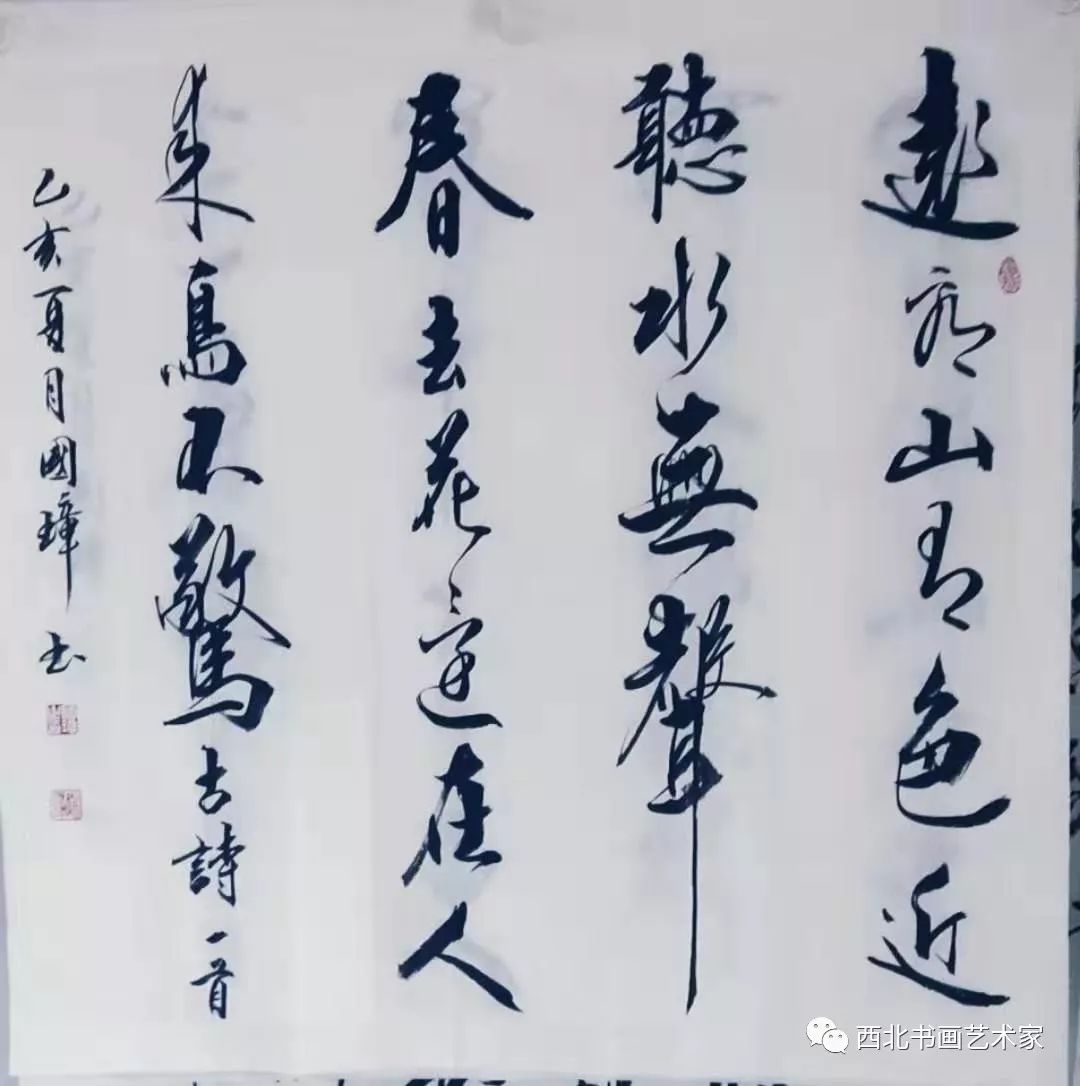 遠看山有色近
聽水無聲
春去花還在人
來鳥不驚古詩一首
乙亥夏月國璋书
西北书画艺术家